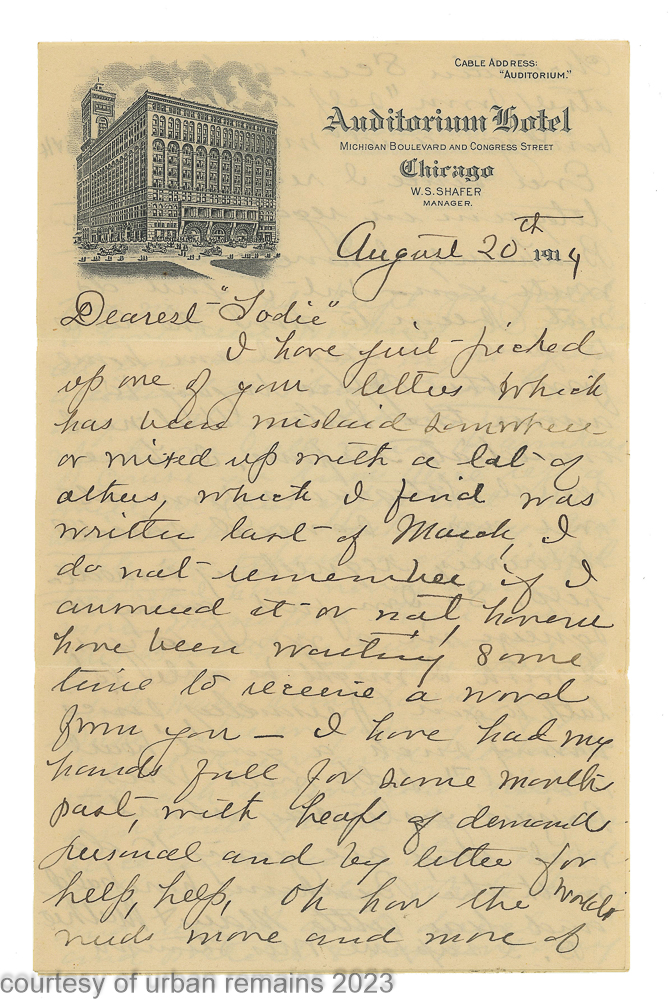 CABLE ADDRESS:
"AUDITORIUM."
Auditorium Hotel
MICHIGAN BOULEVARD AND CONGRESS STREET
Chicago
W. S. SHAFER
MANAGER.
August 20th 1914
Dearest "Sodie"
I have just picked
up one of your letters which
has been mislaid somwhere
or mixed up with a lot of
others, which I find was
written last of March, I
do not remember if I
answered it or not, however
have been waiting some
time to receive a word
from you — I have had my
hands full for some months
past, with heaps of demands
personal and by letter for
help, help, Oh how the world
needs more and more of
courtesy of urban remains 2023